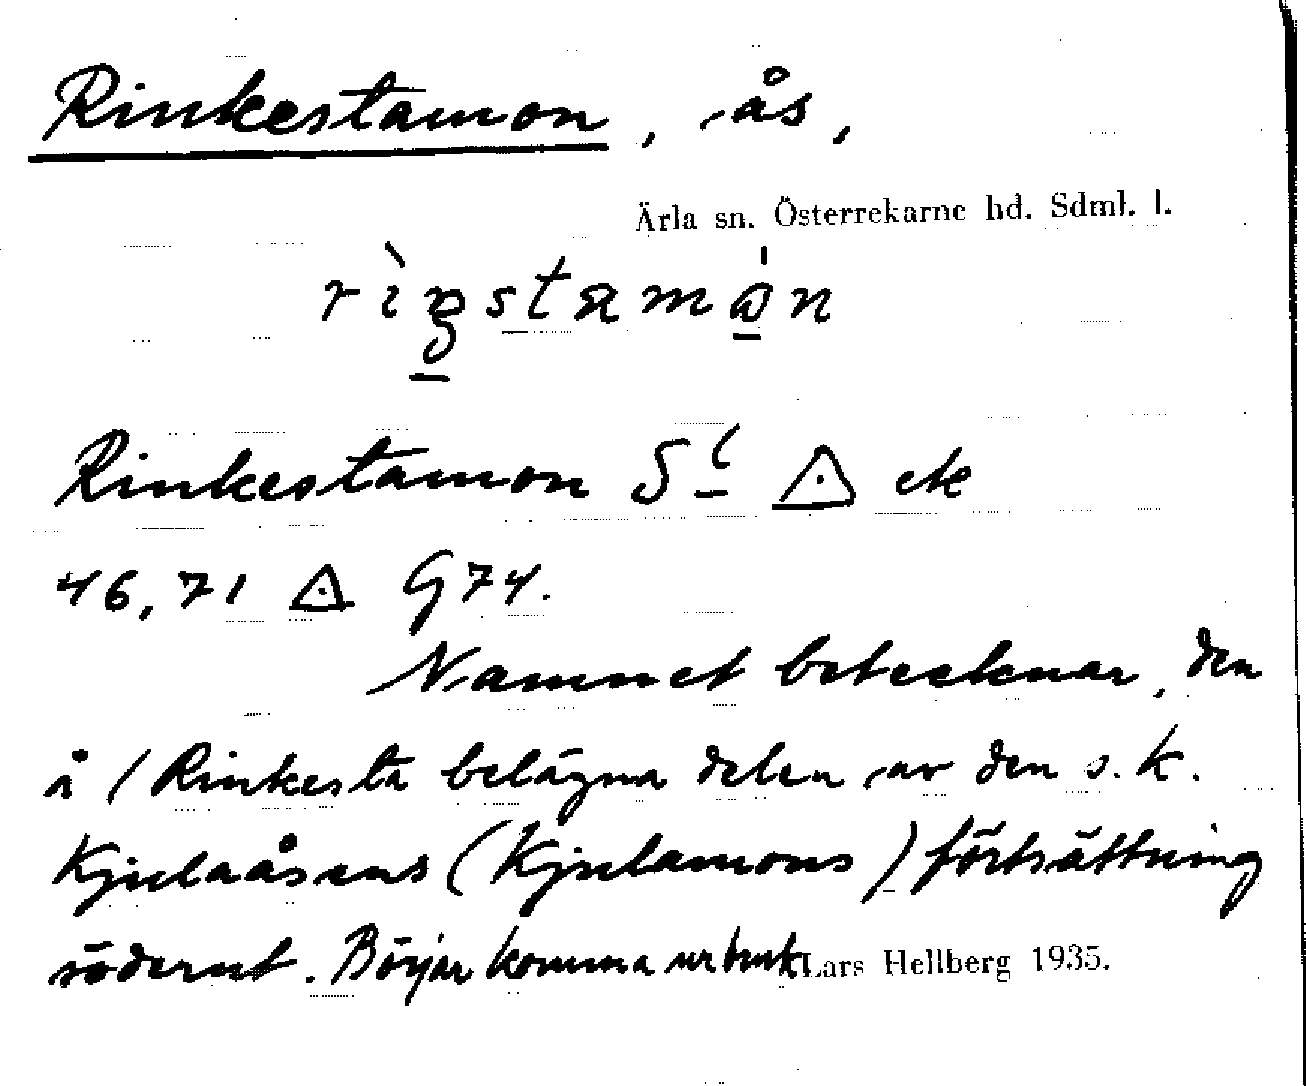 Rinkestamon, ås,
Ärla sn. Österrekarne hd. Sdml. l.
Rinkestamon S
46,71 G74.
Namnet betecknar, den
å / Rinkesta belägna delen av den s.k.
Kjulaåsens (Kjulamons) förtsättning
söderut. Börjar komma ur bruk
Lars Hellberg 1935.